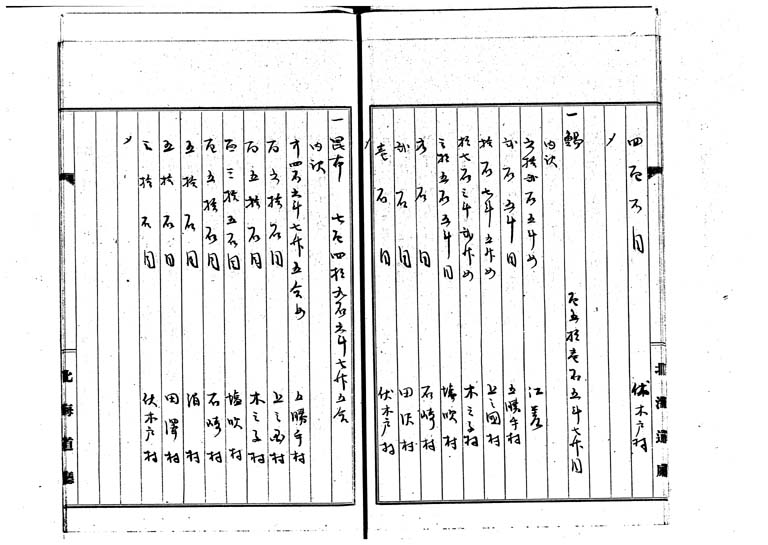 四百石目 伏木戸村
〆
一 鯣 百五拾壱石五斗七升目
内訳
六拾弐石五斗め 江差
石五斗目 五勝手村
拾石七斗五升め 上之国村
拾七石三斗弐升め 木之子村
三拾五石五斗目 塩吹村
石目 石崎村
弐石目 田沢村
壱石目 伏木戸村
〆
北海道廳
一 昆布 七百四拾九石六斗七升五合
内訳
廿四石六斗七升五合め 五勝手村
百六拾石目 上之国村
百五拾石目 木之子村
百三拾五石目 塩吹村
百五拾石目 石崎村
五拾石目 泊村
五拾石目 田澤村
三拾石目 伏木戸村
〆
北海道廳